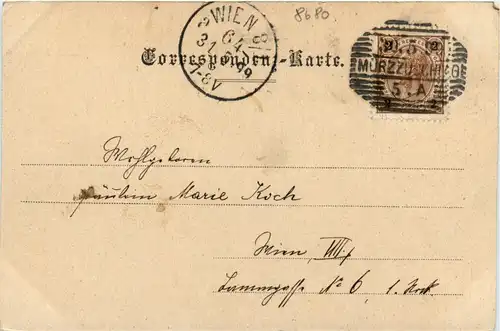 8680.
WIEN
Correspondenz-Karte.
2 2
MÜRZZUSCHLAG
Wohlgeboren
Fräulein Marie Koch
Wien VIII/1
Lammgasse No 6, 1. Stock